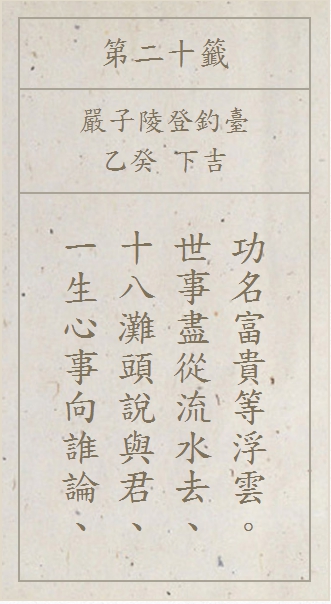 第二十籤
嚴子陵登釣臺
乙癸 下吉
一生心事向誰論、
十八灘頭說與君、
世事盡從流水去、
功名富貴等浮雲。